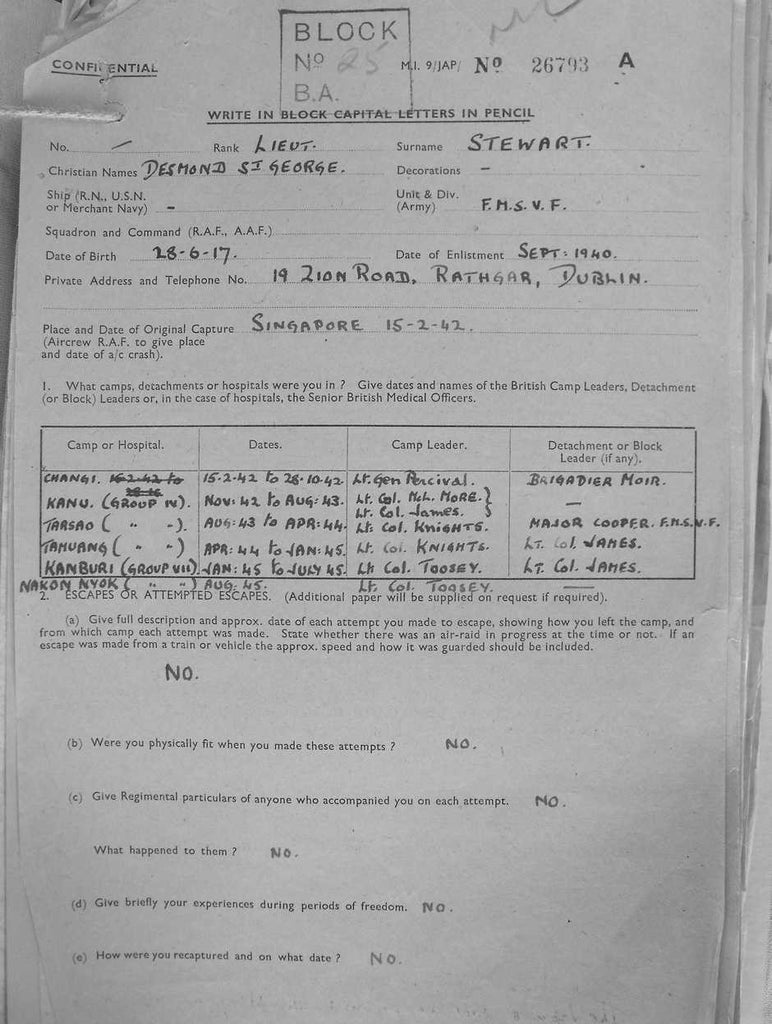 BLOCK
Nº 25
B.A.
CONFIDENTIAL
M.I. 9/JAP/ Nº 26793 A
WRITE IN BLOCK CAPITAL LETTERS IN PENCIL
No. — Rank LIEUT. Surname STEWART.
Christian Names DESMOND ST GEORGE. Decorations —
Ship (R.N., U.S.N. or Merchant Navy) — Unit & Div. (Army) F.M.S.V.F.
Squadron and Command (R.A.F., A.A.F.)
Date of Birth 28-6-17. Date of Enlistment SEPT: 1940.
Private Address and Telephone No. 19 ZION ROAD, RATHGAR, DUBLIN.
Place and Date of Original Capture SINGAPORE 15-2-42.
(Aircrew R.A.F. to give place
and date of a/c crash).
1. What camps, detachments or hospitals were you in ? Give dates and names of the British Camp Leaders, Detachment
(or Block) Leaders or, in the case of hospitals, the Senior British Medical Officers.
Camp or Hospital. Dates. Camp Leader. Detachment or Block Leader (if any).
CHANGI. 15-2-42 to 28-10-42 Lt. Gen Percival. BRIGADIER MOIR.
KANU. (GROUP IV). NOV: 42 to AUG: 43. Lt. Col. MORE. } —
Lt. Col. James. }
TARSAO ( " " ). AUG: 43 to APR: 44. Lt. Col. KNIGHTS. MAJOR COOPER. F.M.S.V.F.
TAMUANG ( " " ) APR: 44 to JAN: 45. Lt. Col. KNIGHTS. LT. Col. JAMES.
KANBURI (GROUP VII). JAN: 45 to JULY 45. Lt Col. TOOSEY. LT. Col. JAMES.
NAKON NYOK ( " " ) AUG. 45. Lt. Col. TOOSEY. —
2. ESCAPES OR ATTEMPTED ESCAPES. (Additional paper will be supplied on request if required).
(a) Give full description and approx. date of each attempt you made to escape, showing how you left the camp, and
from which camp each attempt was made. State whether there was an air-raid in progress at the time or not. If an
escape was made from a train or vehicle the approx. speed and how it was guarded should be included.
NO.
(b) Were you physically fit when you made these attempts ? NO.
(c) Give Regimental particulars of anyone who accompanied you on each attempt. NO.
What happened to them ? NO.
(d) Give briefly your experiences during periods of freedom. NO.
(e) How were you recaptured and on what date ? NO.